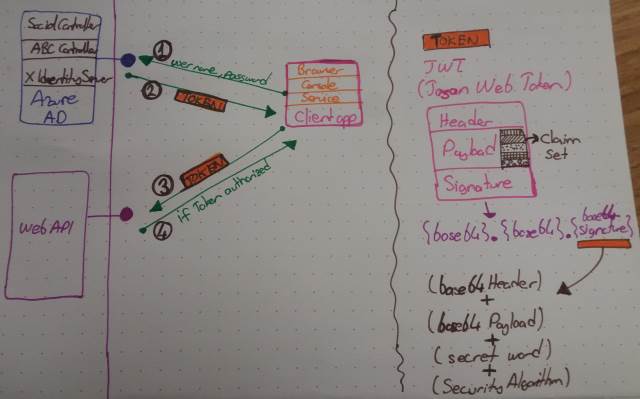 Social Controller
ABC Controller
X IdentityServer
Azure
AD
1
username, password
2
TOKEN
Browser
Console
Service
Client app
3
TOKEN
if Token authorized
4
Web API
TOKEN
JWT
(Jason Web Token)
Header
Payload
Claim
Set
Signature
{base64}.{base64}.{base64
Signature}
(base64 Header)
+
(base64 Payload)
+
(secret word)
+
(Security Algorithm)